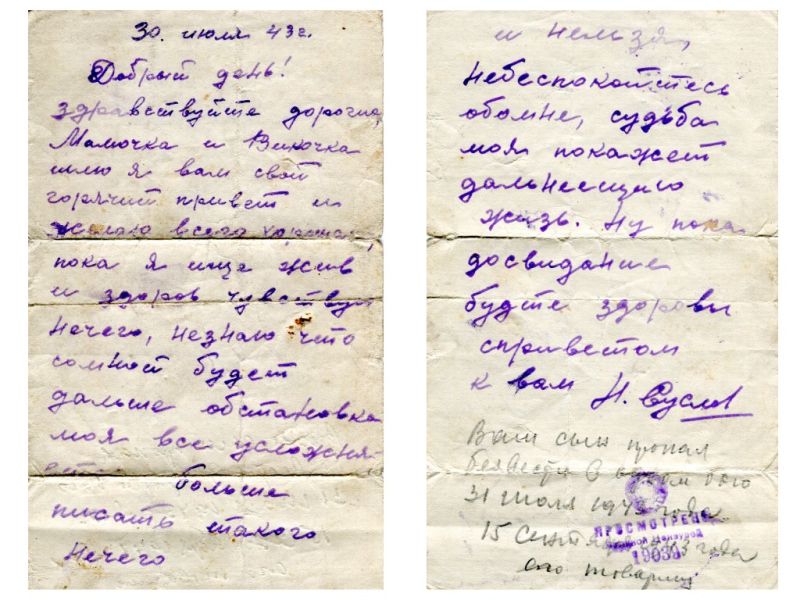 30. июля 43 г.
Добрый день!
здравствуйте дорогие
Мамочка и Викочка
шлю я вам свой
горячий привет и
желаю всего хорошего,
пока я ище жив
и здоров чувствую
нечего, незнаю что
сомной будет
дальше обстановка
моя все усложня-
ется больше
писать такого
нечего
и нельзя,
небеспокойтесь
обомне, судьба
моя покажет
дальнеещую
жизь. Ну пока
досвидание
будте здоровы
сприветом
к вам Н. Суслов
Ваш сын пропал
безвести в бою
31 июля 1943 года
15 Сентября 1943 года
его товарищ
ПРОСМОТРЕНО
Военной Цензурой
19039